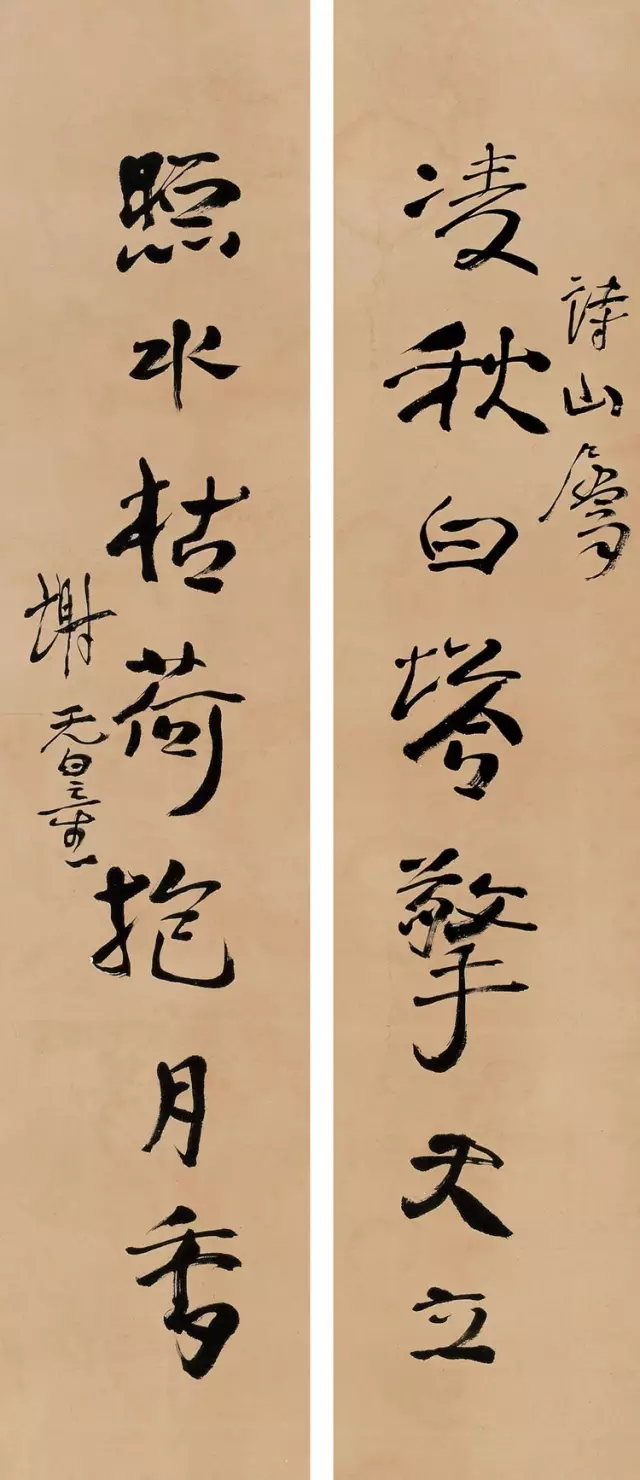 詩山屬
凌秋白塔擎天立
照水枯荷抱月香
謝无量